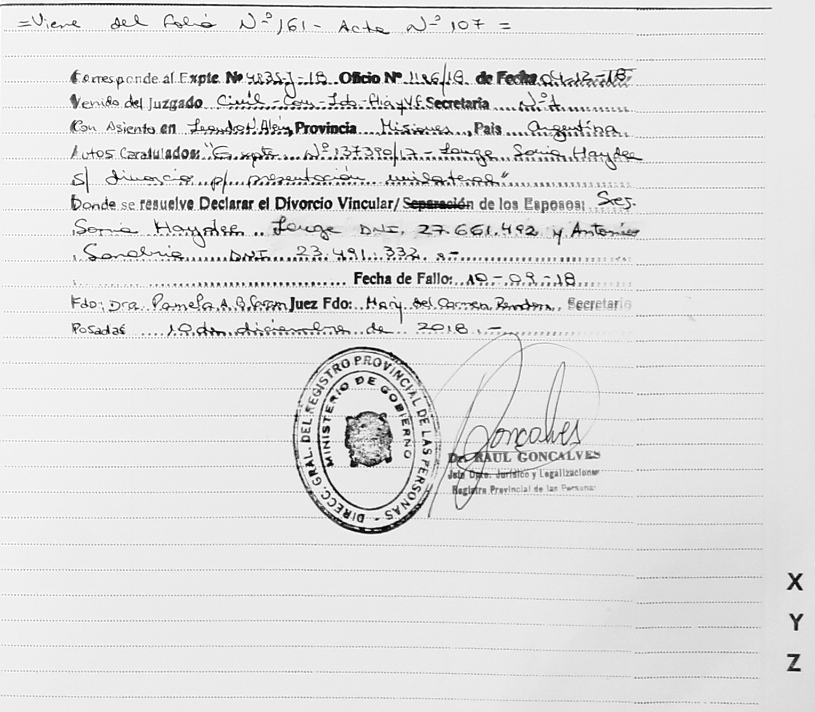 =Viene del folio Nº 161 - Acta Nº 107 =
Corresponde al Expte. Nº 4835-J-18 Oficio Nº 1186/18 de Fecha 04-12-18
Venido del Juzgado Civil-Com-Lab-Flia y VF Secretaria Nº 1
Con Asiento en Leandro N. Alem, Provincia Misiones, Pais Argentina
Autos Caratulados: "Expte. Nº 137380/17 - Lange Sonia Haydee
s/ divorcio p/ presentación unilateral"
Donde se resuelve Declarar el Divorcio Vincular/ Separación de los Esposos: Sres.
Sonia Haydee Lange DNI. 27.661.492 y Antonio
Sanabria DNI 23.491.332
Fecha de Fallo: 10-09-18
Fdo: Dra. Pamela A. Juez Fdo: Mary del Carmen Secretario
Posadas 10 de diciembre de 2018.-
DIRECC. GRAL. DEL REGISTRO PROVINCIAL DE LAS PERSONAS -
MINISTERIO DE GOBIERNO
Goncalves
Dr. RAUL GONCALVES
Jefe Dpto. Jurídico y Legalizaciones
Registro Provincial de las Personas
X
Y
Z